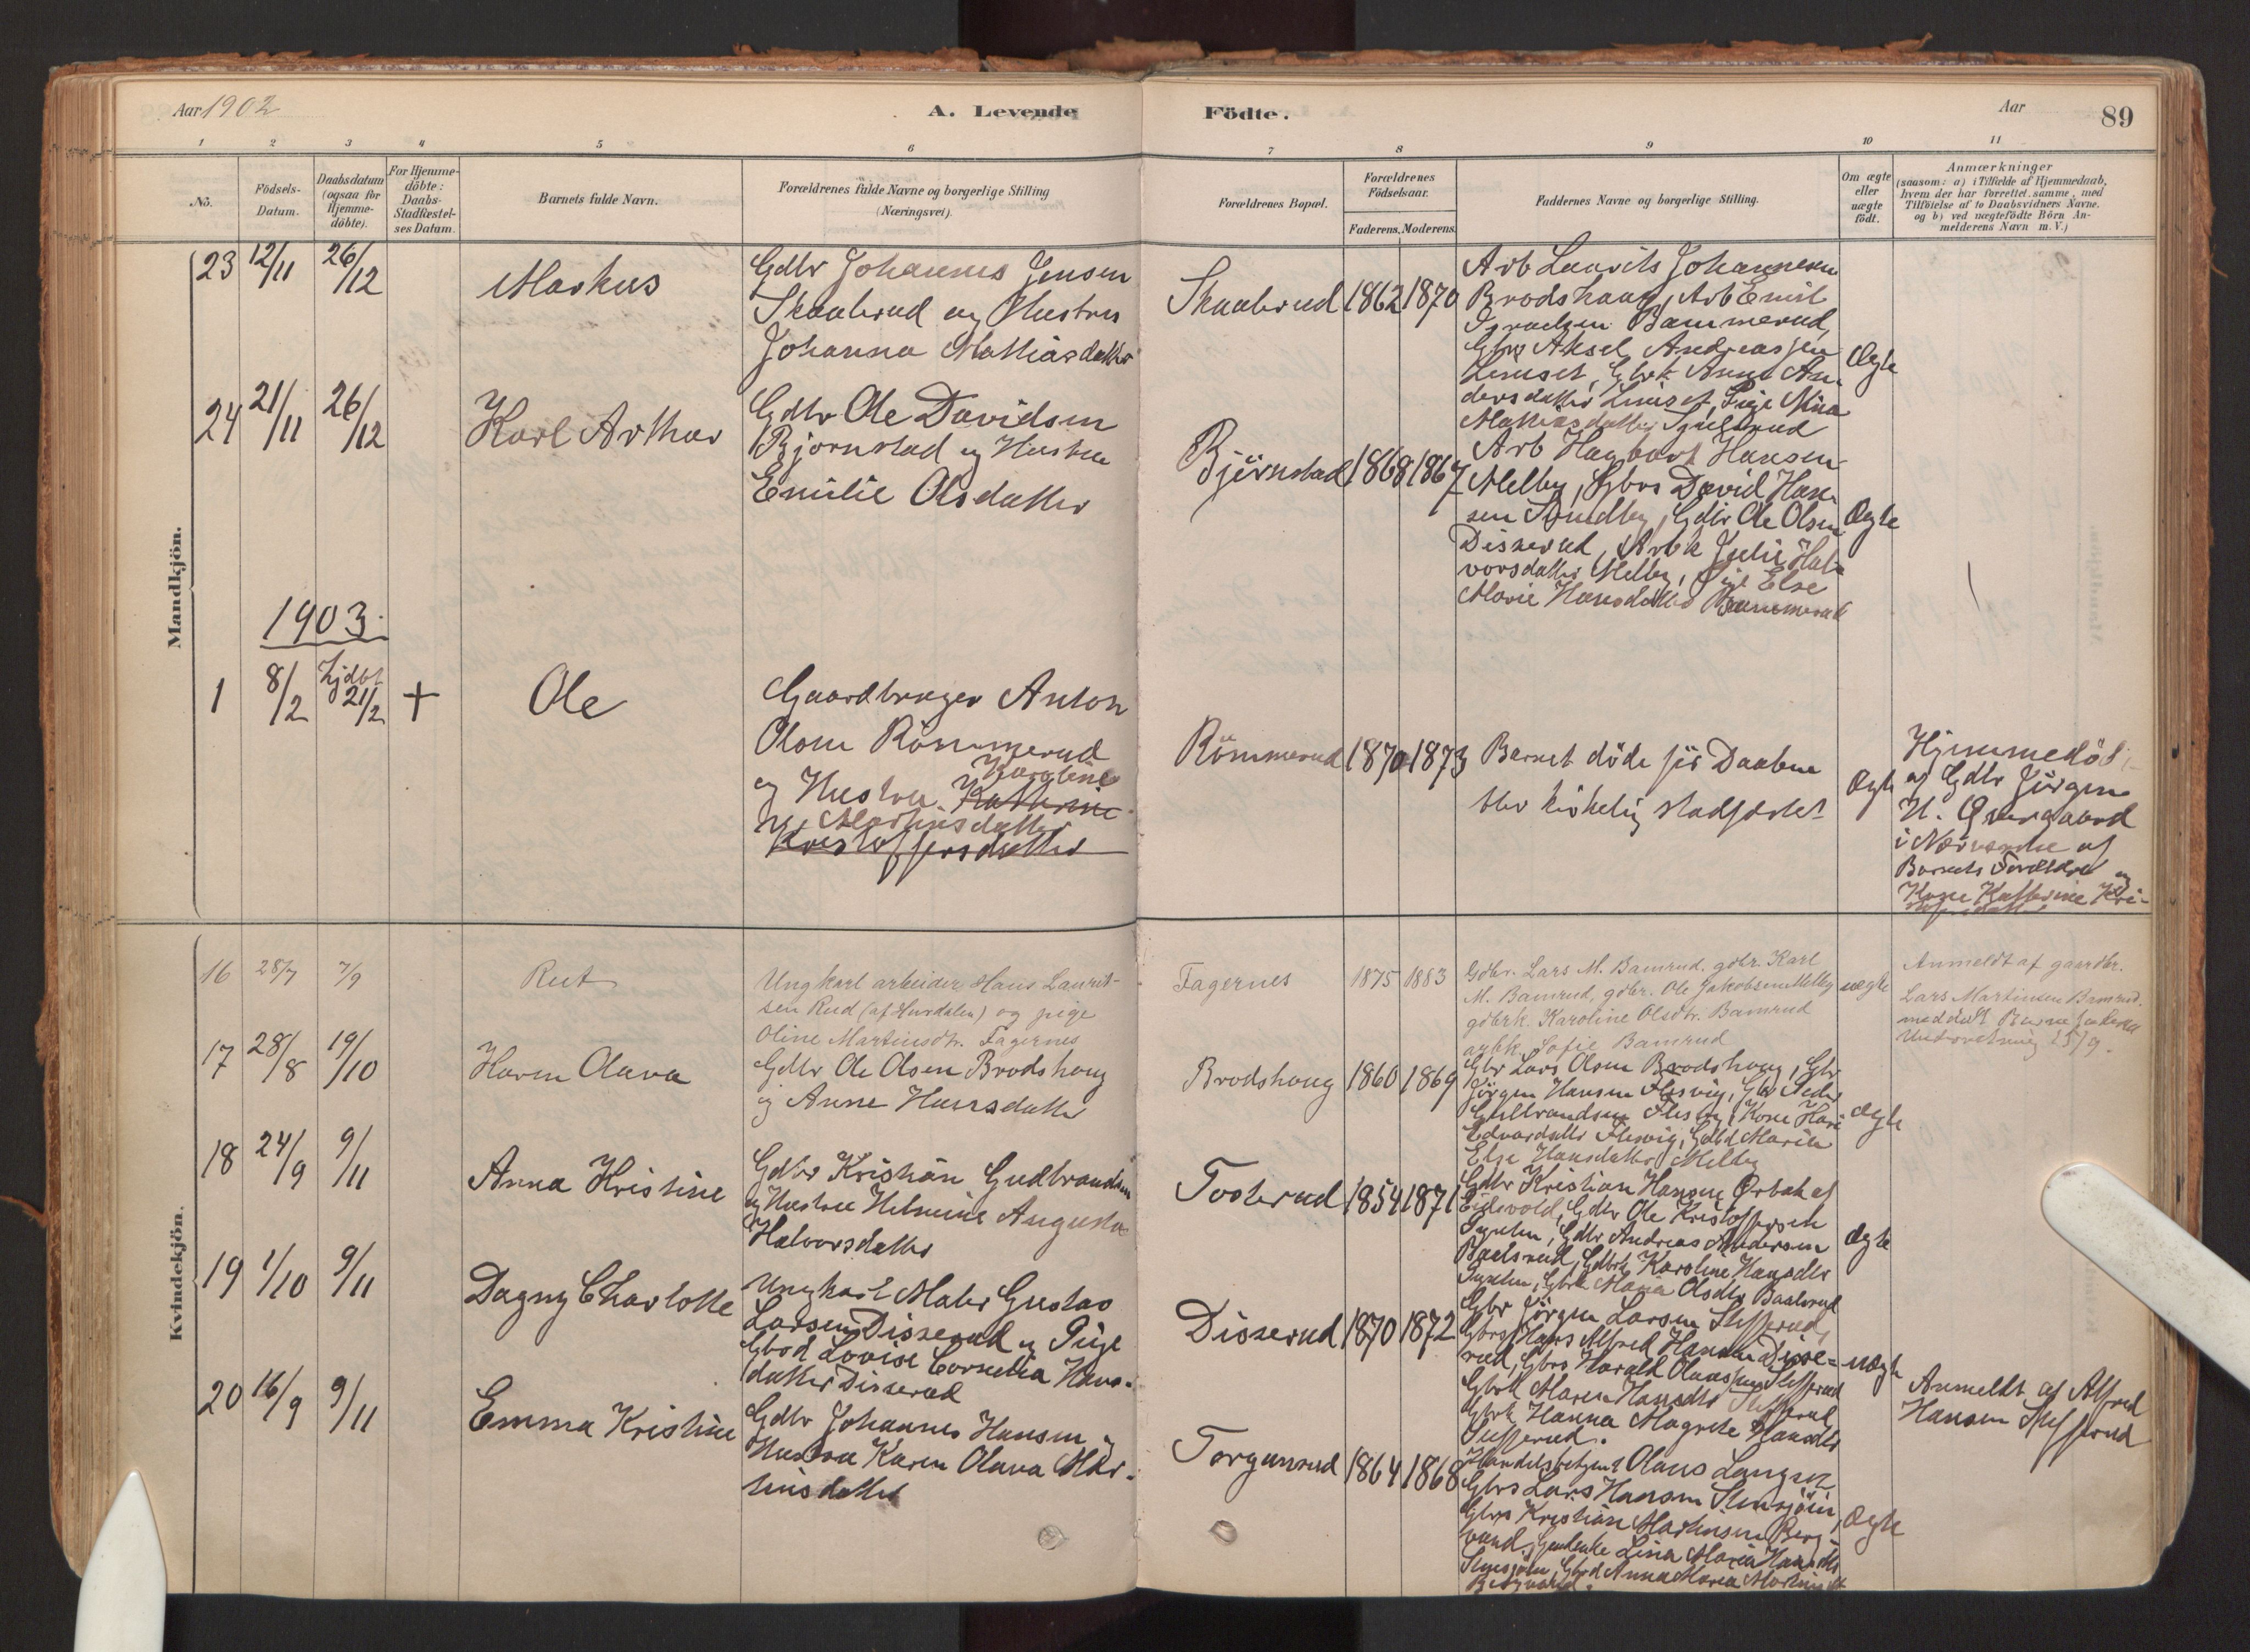 Aar 1902
A. Levende Födte.
Aar
89
1 2 3 4 5 6 7 8 9 10 11
No.
Födsels-Datum.
Daabsdatum (ogsaa for Hjemme-döbte).
For Hjemme-döbte: Daabs-Stadfæstel-ses Datum.
Barnets fulde Navn.
Forældrenes fulde Navne og borgerlige Stilling (Næringsvei).
Forældrenes Bopæl.
Forældrenes Födselsaar.
Faderens. Moderens.
Faddernes Navne og borgerlige Stilling.
Om ægte eller uægte födt.
Anmærkninger
(saasom: a) i Tilfælde af Hjemmedaab, hvem der har forrettet samme, med Tilföielse af to Daabsvidners Navne. og b) ved uægtefödte Börn An-melderens Navn m. V.)
Mandkjön.
23 12/11 26/12
Markus
Gdbr Johannes Jensen
Skaaberud og Hustru
Johanna Mathiasdatter
Skaaberud 1862 1870
Arb Laurits Johannesen
Brodshaug, Arb Emil
Bammerud,
Gbrs Aksel Andreassen
Linuset, Gbrk Anna An-
dersdatter Linuset, Pige Mina
Mathiasdatter
Ægte
24 21/11 26/12
Karl Arthur
Gdbr Ole Davidsen
Bjørnstad og Hustru
Emilie Olsdatter
Björnstad 1868 1867
Arb Hagbart Hansen
Melby, Gbrs David Han-
sen Sundby, Gdbr Ole Olsen
Disserud, Arbk Julie Hal-
vorsdatter Melby, Pige Else
Marie Hansdatter Bammerud
Ægte
1903.
1 8/2 Hjdbt 21/2 +
Ole
Gaardbruger Anton
Olsen Römmerud
og Hustru Katherine Karoline
Kristoffersdatter Martinsdatter
Römmerud 1870 1873
Barnet döde för Daaben
blev kirkelig stadfæstet
Ægte
Hjemmedöbt
af Gdbr Jörgen
H. Övergaard
i Nærværelse af
Barnets Forældre og
Kone Katherine Kri-
stoffersdatter
Kvindekjön.
16 28/7 7/9
Rut
Ungkarl arbeider Hans Laurit-
sen Rud (af Hurdalen) og pige
Oline Martinsdtr. Fagernes
Fagernes 1875 1883
Gdbr. Lars M. Bamrud. gdbr. Karl
M. Bamrud, gdbr. Ole Jakobsen Melby
gdbrk. Karoline Olsdtr. Bamrud
arbk. Sofie Bamrud
uægte
Anmeldt af gaardbr.
Lars Martinsen Bamrud.
17 28/8 19/10
Karen Olava
Gdbr Ole Olsen Brodshaug
og Anne Hansdatter
Brodshaug 1860 1869
Gbr Lars Olsen Brodshaug, Gbr
Jörgen Hansen Flesvig, Gbr Peder
Gulbrandsen Flesvig, Kone
Edvardsdtr Flesvig, Gdbd Maria
Else Hansdatter Melby
Ægte
18 24/9 9/11
Anna Kristine
Gdbr Kristian Gudbrandsen
og Hustru Helmine Augusta
Halvorsdatter
Tosterud 1854 1871
Gdbr Kristian Hansen Örbæk af
Eidsvold, Gdbr Ole Kristoffersen
Gdbr Andreas Andersen
Baalsrud, Gdbrk Karoline Hansdtr
Gbrk Maria Olsdtr Baalsrud
Ægte
19 1/10 9/11
Dagny Charlotte
Ungkarl Maler Gustav
Larsen Disserud og Pige
Gbsd Lovise Cornelia Hans-
datter Disserud
Disserud 1870 1872
Gbr Jörgen Larsen Slefferud,
Gbrs Hans Alfred Hansen Disse-
rud, Gbrs Harald Olaussen Slefferud
Gbrk Maren Hansdtr Slefferud
Gbrk Hanna Magrete Hansdtr
Slefferud.
uægte
Anmeldt af Alfred
Hansen Slefferud
20 16/9 9/11
Emma Kristine
Gdbr Johannes Hansen og
Hustru Karen Olava Mar-
tinsdatter
Torgunrud 1864 1868
Handelsbetjent Olaus Langset
Gbrs Lars Hansen Stensjöen,
Gbrs Kristian Martinsen Berg-
vand, Gaardenke Lina Maria Hansdtr
Stensjöen, Gbrd Anna Maria Martinsdt
Bergvand.
Ægte